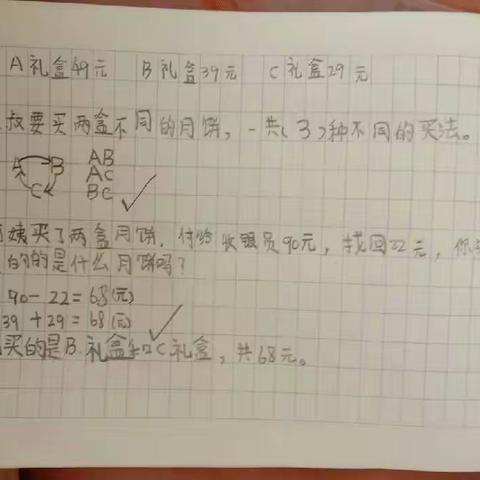 A礼盒49元 B礼盒39元 C礼盒29元
叔要买两盒不同的月饼，一共(3)种不同的买法。
A B AB
C AC
BC
姨买了两盒月饼，付给收银员90元，找回22元，你
的的是什么月饼吗？
90-22=68(元)
39+29=68(元)
买的是B.礼盒和C礼盒，共68元。